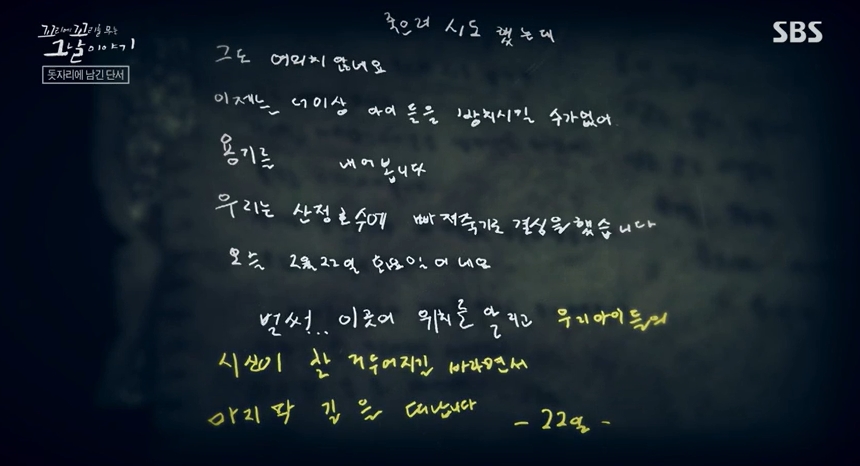 꼬리에 꼬리를 무는
그날 이야기
돗자리에 남긴 단서
SBS
죽으려 시도 했는데
그도 여의치 않네요
이제는 더이상 아이들을 방치시킬 수가없어
용기를 내어봅니다
우리는 산정호수에 빠져죽기로 결심을했습니다
오늘 2월22일 화요일이네요
벌써... 이곳에 위치를 알리고 우리아이들의
시신이 잘 거두어지길 바라면서
마지막 길을 떠납니다 - 22일 -